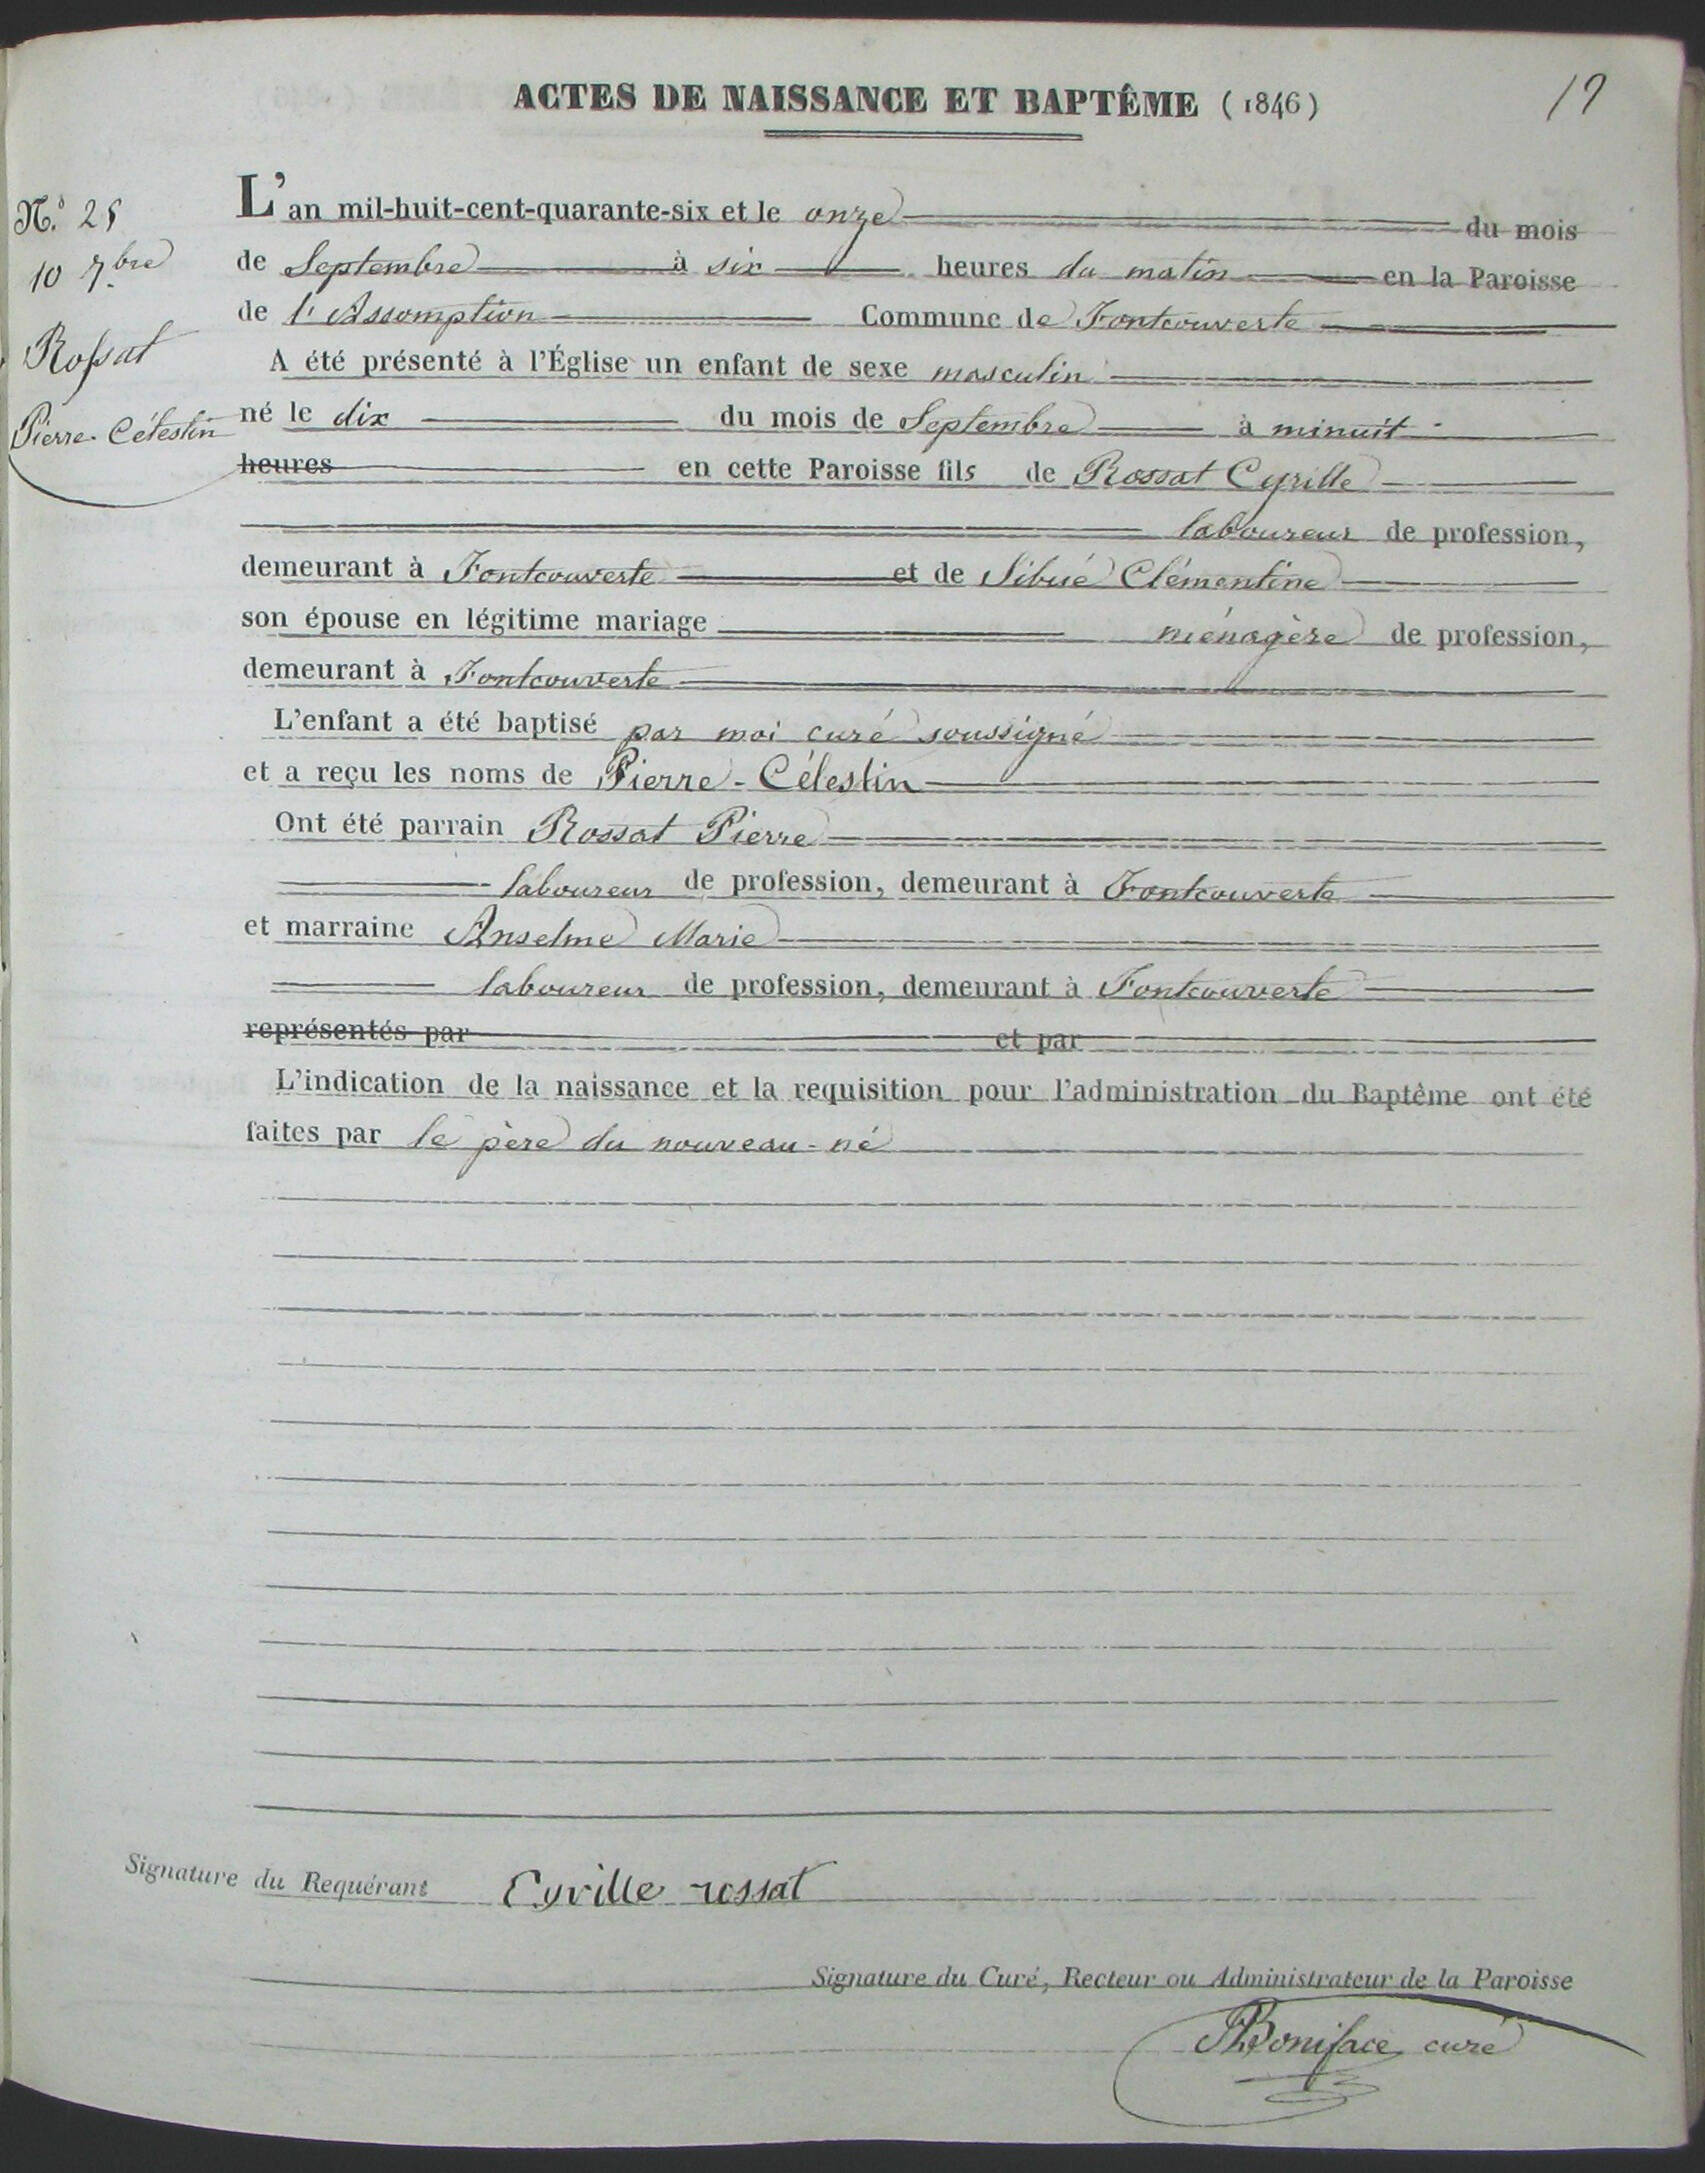 ACTES DE NAISSANCE ET BAPTÊME (1846)
N.º 25
10 7.bre
Rossat
Pierre-Célestin
L'an mil-huit-cent-quarante-six et le onze du mois
de Septembre à six heures du matin en la Paroisse
de l'Assomption Commune de Fontcouverte
A été présenté à l'Église un enfant de sexe masculin
né le dix du mois de Septembre à minuit
heures en cette Paroisse fils de Rossat Cyrille
laboureur de profession,
demeurant à Fontcouverte et de Sibué Clémentine
son épouse en légitime mariage ménagère de profession,
demeurant à Fontcouverte
L'enfant a été baptisé par moi curé soussigné
et a reçu les noms de Pierre-Célestin
Ont été parrain Rossat Pierre
laboureur de profession, demeurant à Fontcouverte
et marraine Anselme Marie
laboureur de profession, demeurant à Fontcouverte
représentés par et par
L'indication de la naissance et la requisition pour l'administration du Baptême ont été
faites par le père du nouveau-né
Signature du Requérant Cyrille rossat
Signature du Curé, Recteur ou Administrateur de la Paroisse
Boniface curé